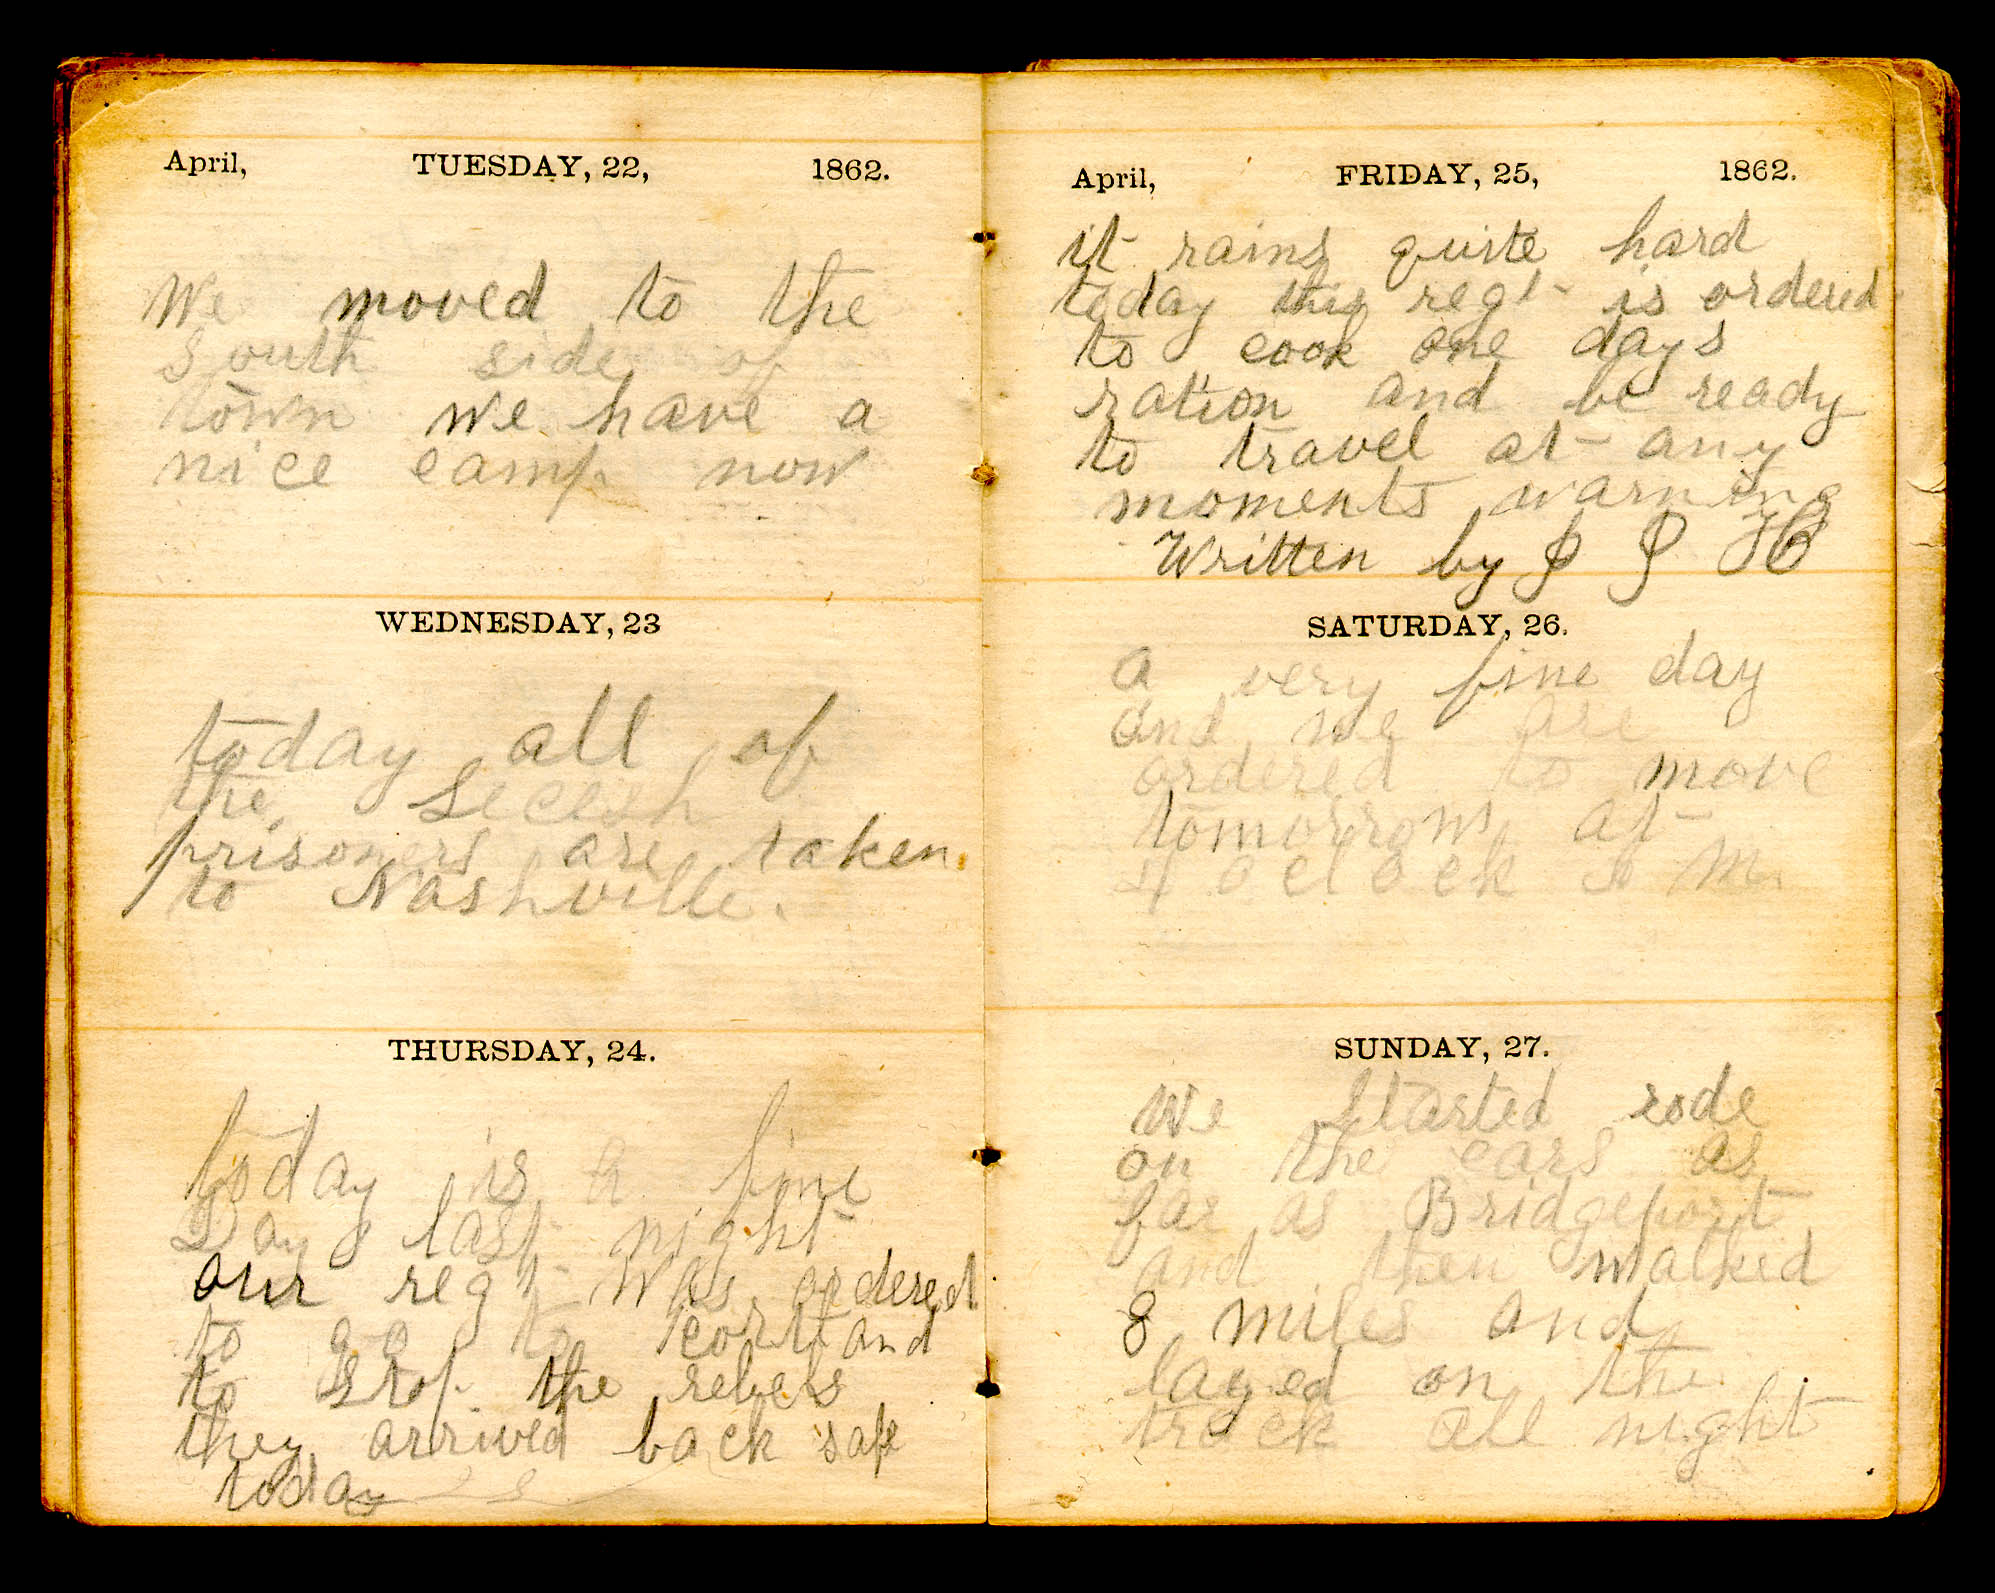 April, TUESDAY, 22, 1862.
We moved to the
South side of
town we have a
nice camp now
WEDNESDAY, 23
today all of
the Secesh
prisoners are taken
to Nashville.
THURSDAY, 24.
today is a fine
Day last night
our regt was ordered
to go to and
to stop the rebels
they arrived back safe
today
April, FRIDAY, 25, 1862.
it rains quite hard
today this regt is ordered
to cook one days
ration and be ready
to travel at any
moments warning
Written by J J H
SATURDAY, 26.
a very fine day
and we are
ordered to move
tomorrow at
oclock M.
SUNDAY, 27.
We Started rode
on the cars as
far as Bridgeport
and then walked
8 miles and
layed on the
track all night